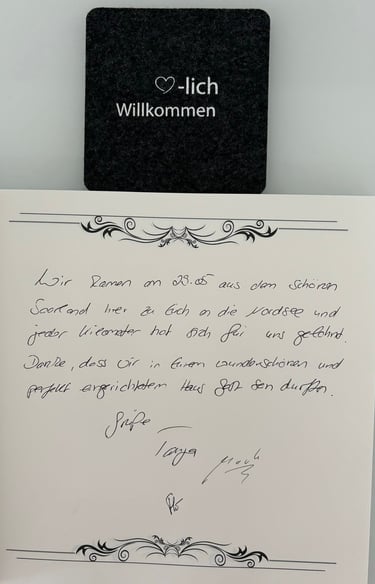 ♡-lich
Willkommen
Wir kamen am 29.05 aus dem schönen
Saarland hier zu Euch an die Nordsee und
jeder Kilometer hat sich für uns gelohnt.
Danke, dass wir in Eurem wunderschönen und
perfekt eingerichtetem Haus Gast sein durften.
Grüße
Tanja